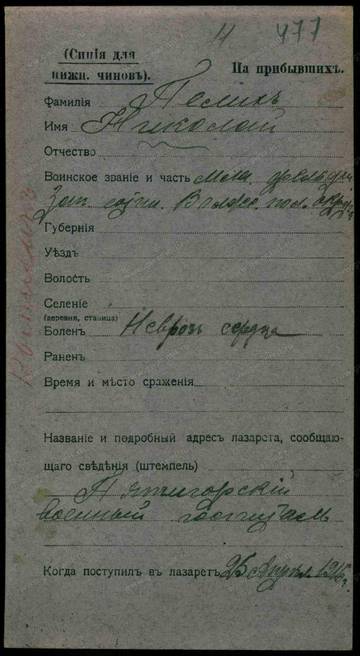 4 477
(Синія для
нижн. чиновъ).
На прибывшихъ.
Фамилія Пелихъ
Имя Николай
Отчество
Воинское званіе и часть Млад.
Зап.
Губернія
Уѣздъ
Волость
Селеніе
(деревня, станица)
Боленъ Неврозъ сердца
Раненъ
Время и мѣсто сраженія
Названіе и подробный адресъ лазарета, сообщаю-
щаго свѣдѣнія (штемпель)
Пятигорскій
военный госпиталь
Когда поступилъ въ лазаретъ 25 Апрѣл. 1916 г.